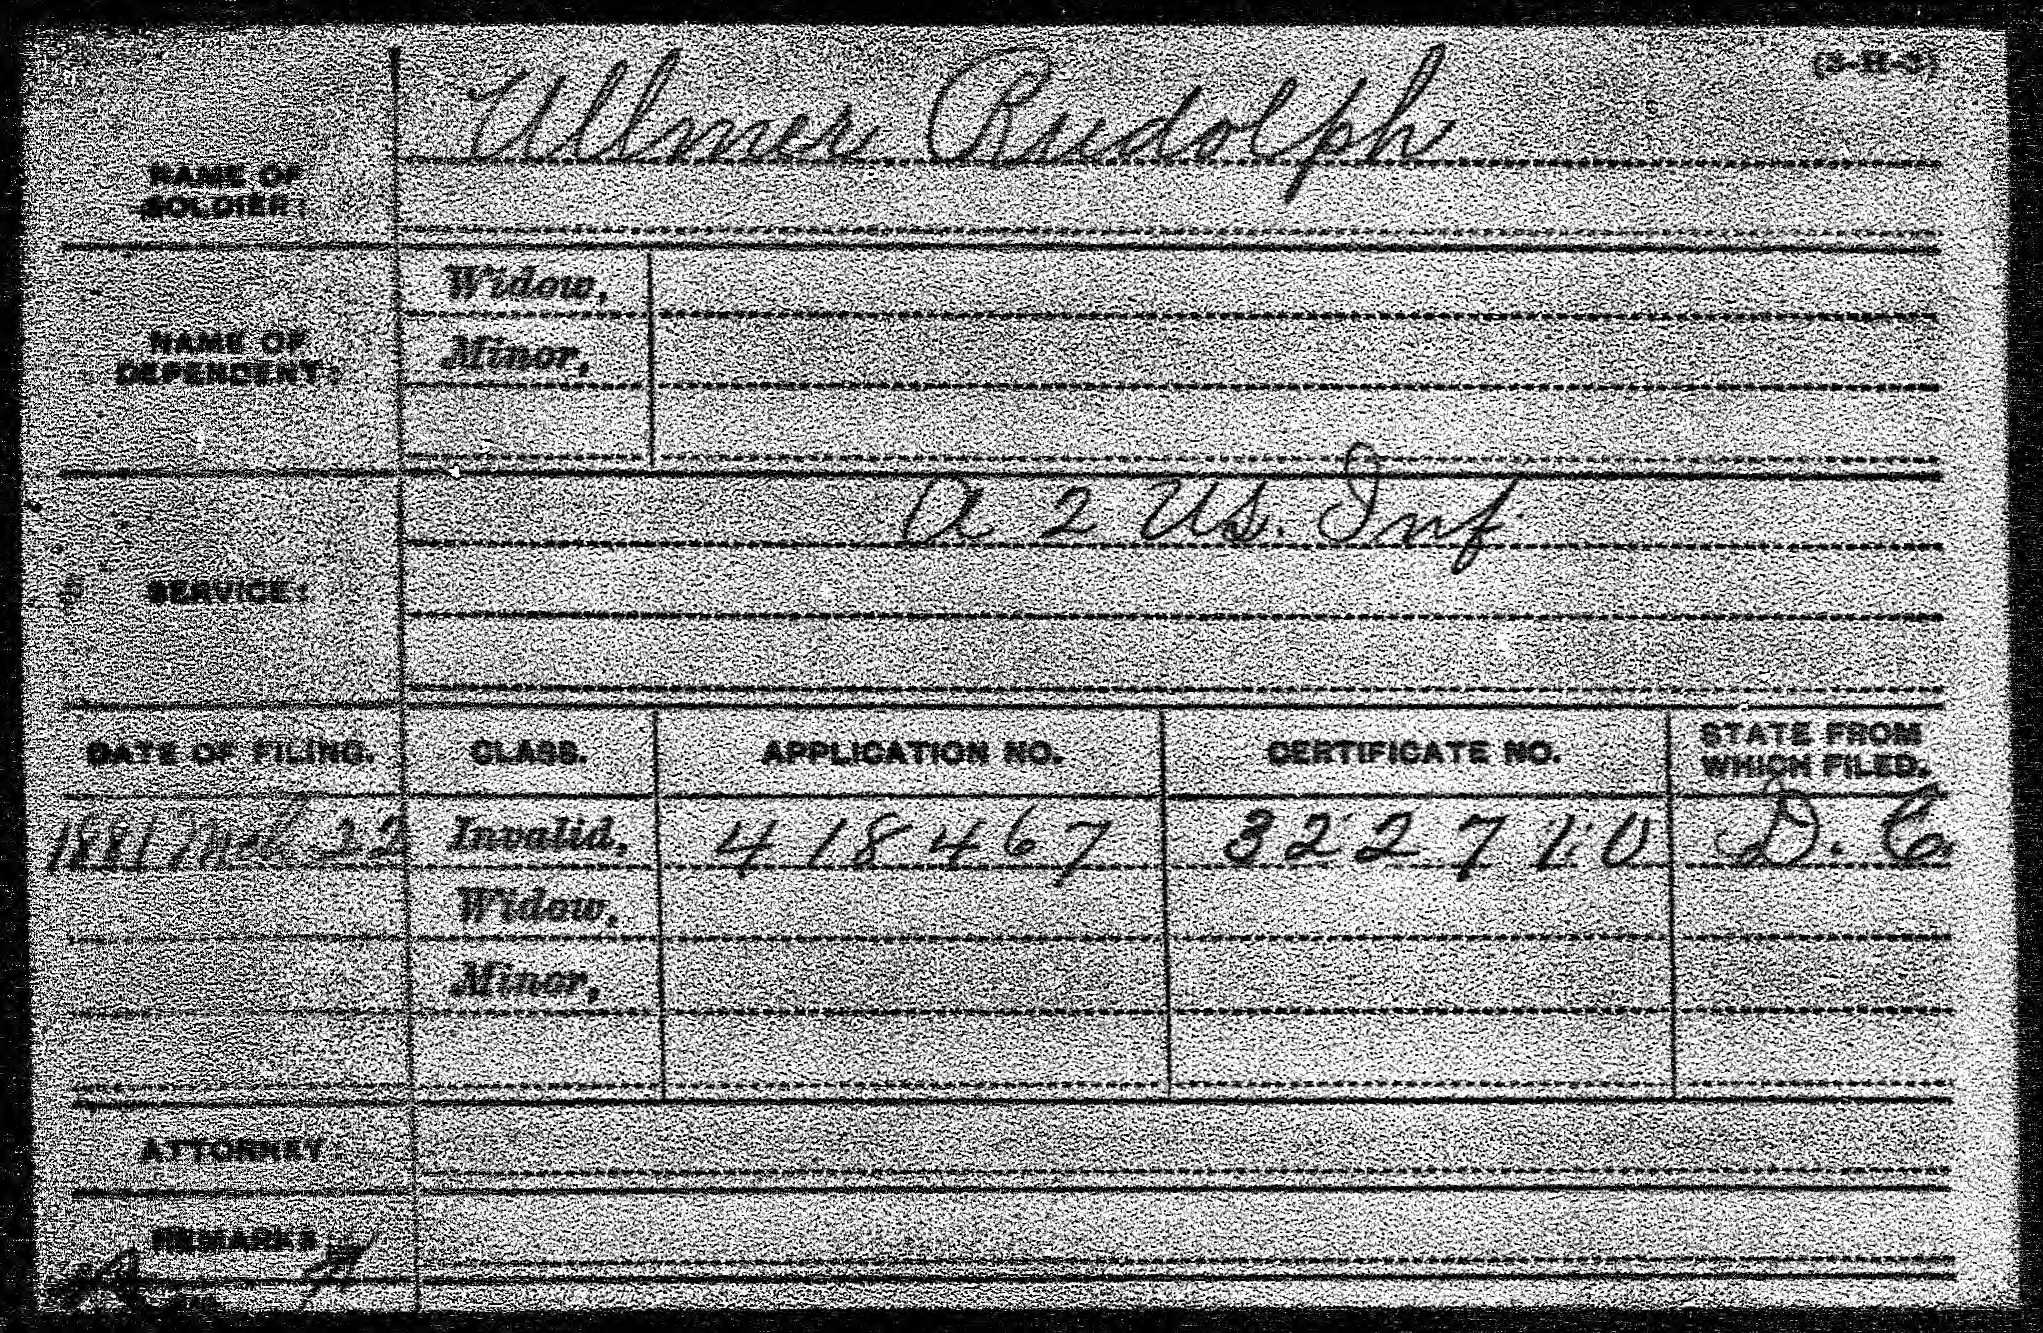 (3-H-3)
Ullmer Rudolph
NAME OF
SOLDIER:
Widow,
NAME OF
DEPENDENT:
Minor,
A 2 U.S. Inf
SERVICE:
DATE OF FILING. CLASS. APPLICATION NO. CERTIFICATE NO. STATE FROM
WHICH FILED.
1881 22 Invalid, 418467 322710 D. C.
Widow,
Minor,
ATTORNEY:
REMARKS